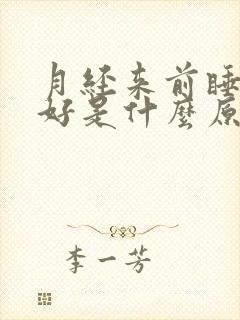 月经来前睡
好是什麼原
李一芳